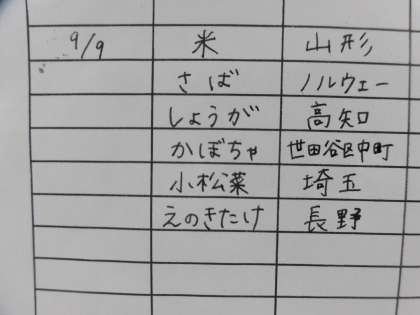 9/9 米 山形
さば ノルウェー
しょうが 高知
かぼちゃ 世田谷区中町
小松菜 埼玉
えのきたけ 長野